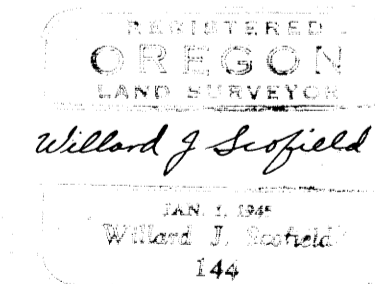 REGISTERED
OREGON
LAND SURVEYOR
Willard J Scofield
JAN. 1, 
Willard J. Scofield
144